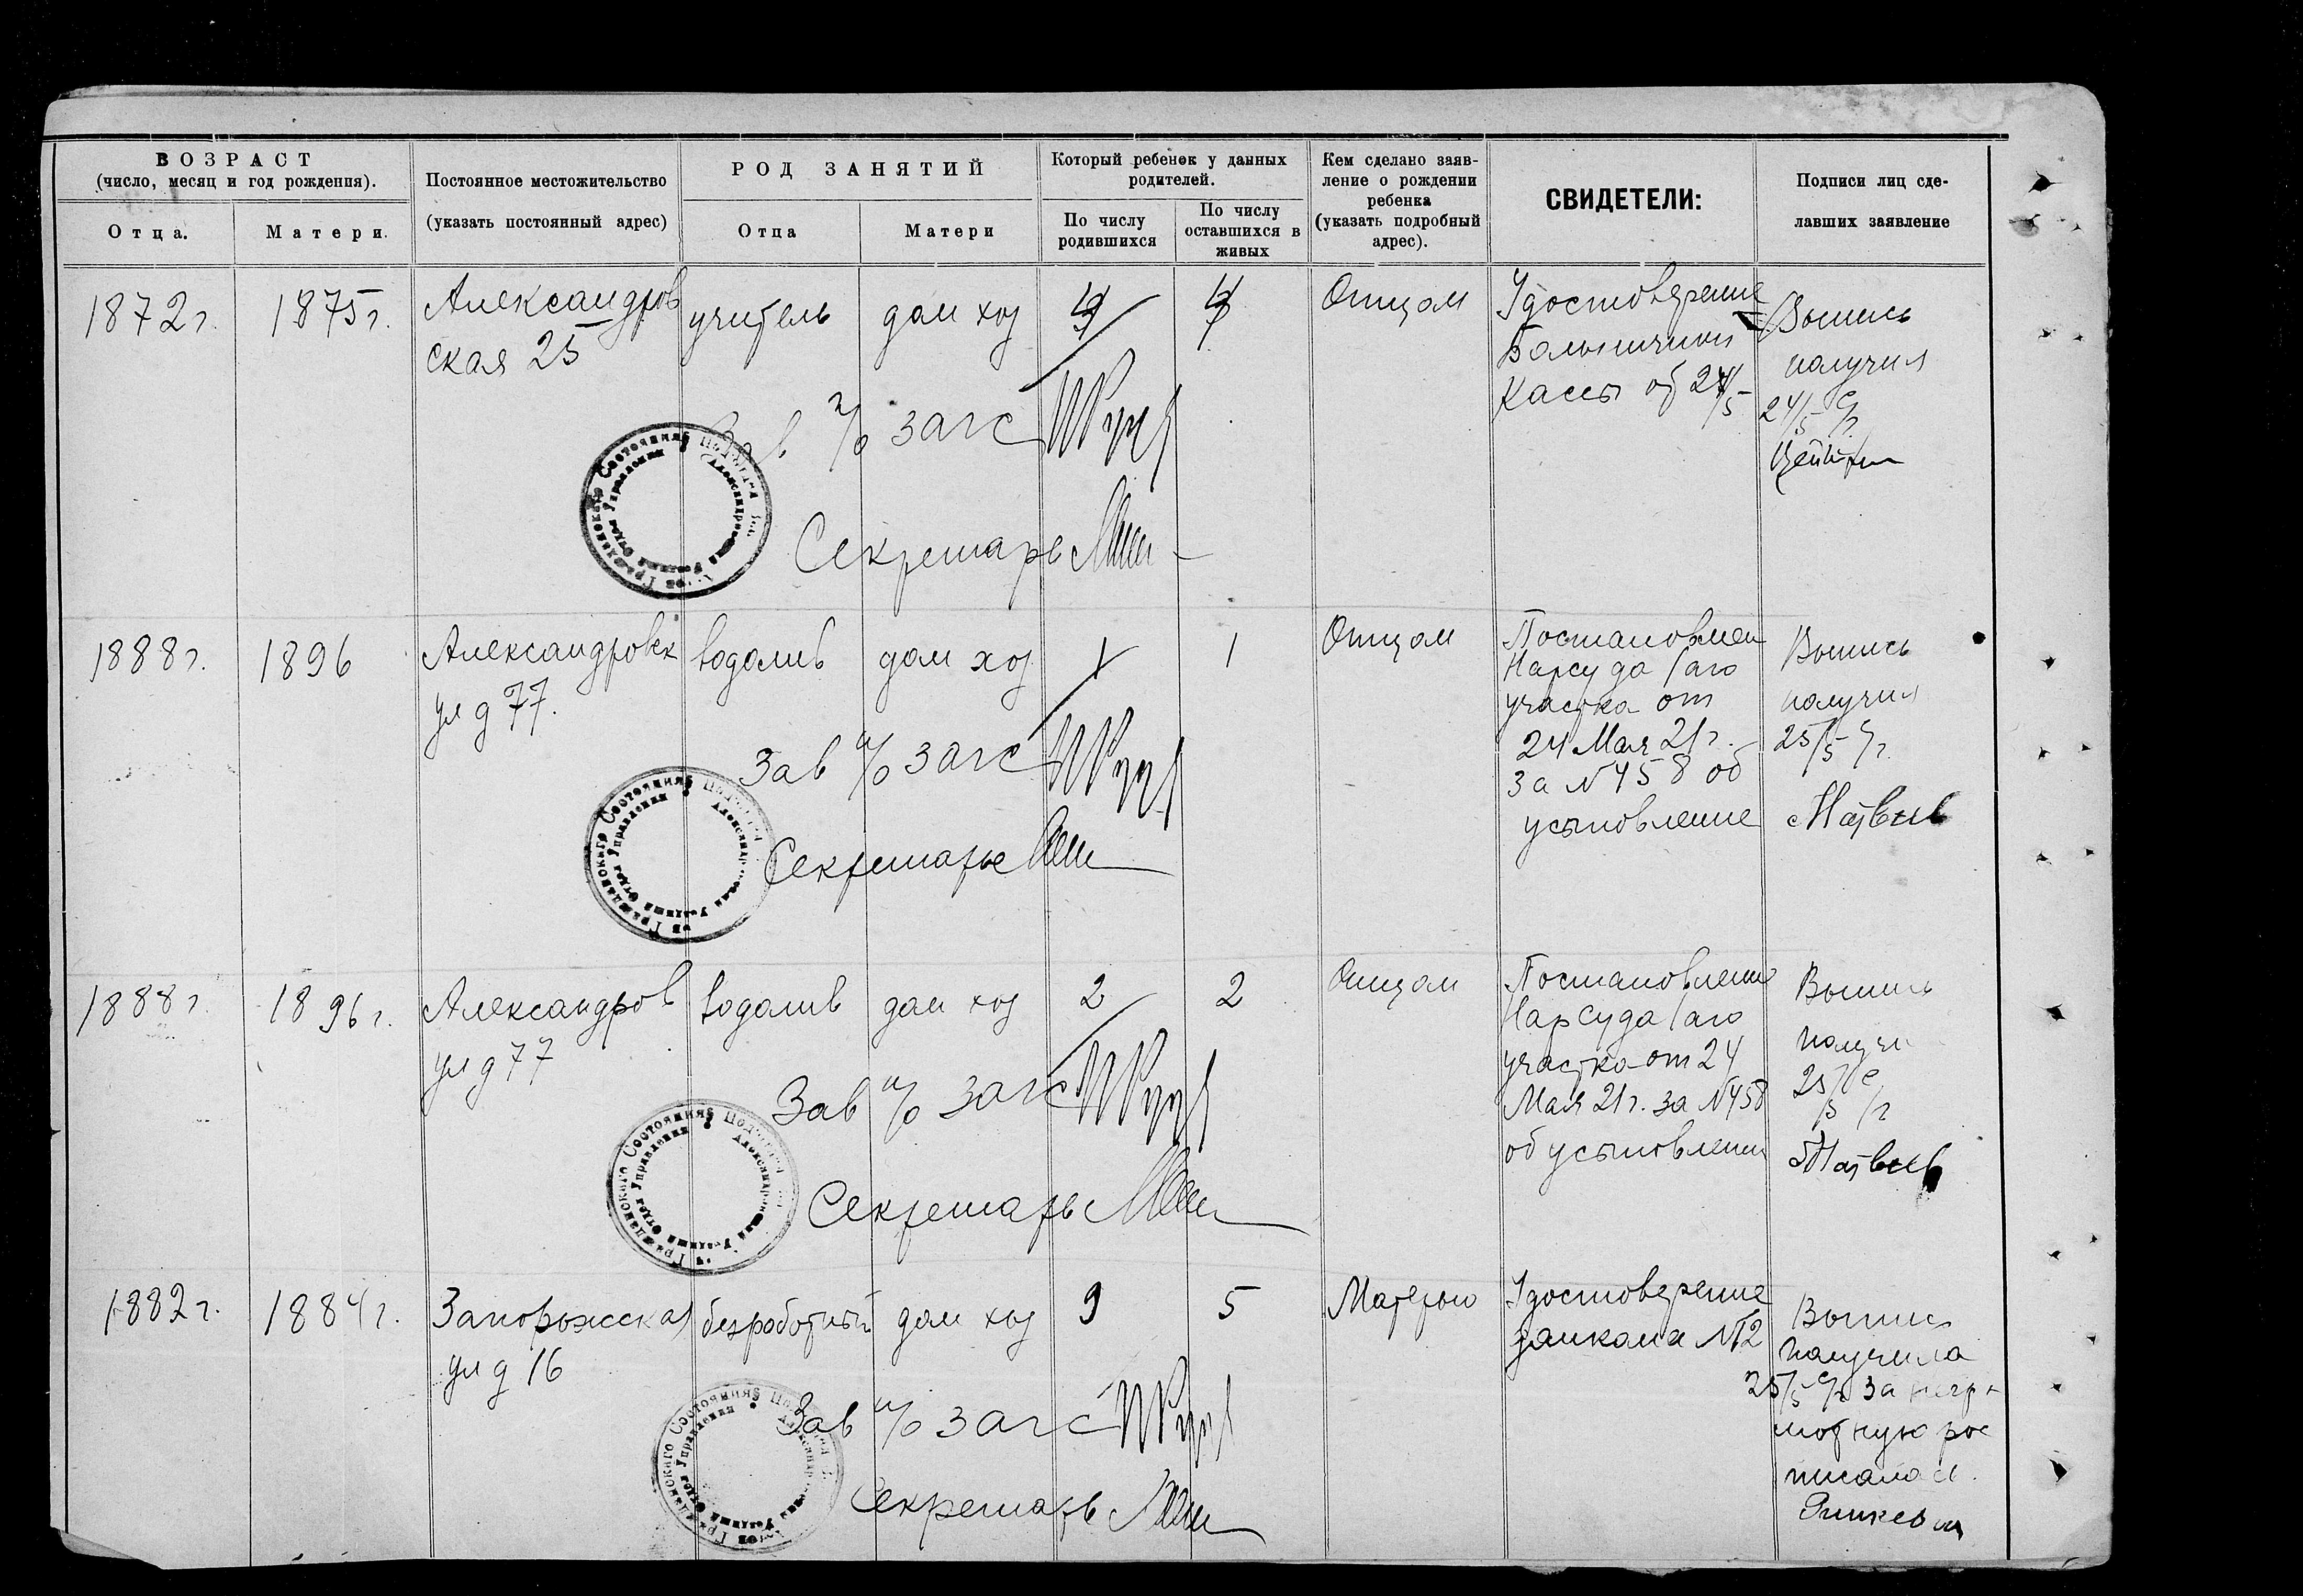 ВОЗРАСТ
(число, месяц и год рождения).
Отца.
Матери.
Постоянное местожительство
(указать постоянный адрес)
РОД ЗАНЯТИЙ
Отца
Матери
Который ребенок у данных
родителей.
По числу
родившихся
По числу
оставшихся в
живых
Кем сделано заяв-
ление о рождении
ребенка
(указать подробный
адрес).
СВИДЕТЕЛИ:
Подписи лиц сде-
лавших заявление
1872 г.
1875 г.
Александров
ская 25
учитель
дом хоз
Отцом
Удостоверение
Больничной
Кассы от 24/5
Выпись
получил
24/5 с/г
Зав п/о загс
Секретарь
1888 г.
1896
Александровск
ул д 77.
водолив
дом хоз
1
1
Отцом
Постановлен
Нарсуда 1 аго
участка от
24 Мая 21 г.
за № 458 об
усыновление
Выпись
получил
25/5 с/г.
Матвеев
Зав п/о загс
Секретарь
1888 г
1896 г.
Александров
ул д 77
водолив
дом хоз
2
2
Отцом
Постановление
Нарсуда 1 аго
участка от 24
Мая 21 г. за № 458
об усыновлении
Выпись
получи
25/5 с/г
Матвеев
Зав п/о загс
Секретарь
1882 г.
1884 г.
Запорожская
ул д 16
безработный
дом хоз
9
5
Матерью
Удостоверение
домкома № 2
Выпись
получила
25/5 с/г За негра
мотную рос
писался
Зав п/о загс
Секретарь